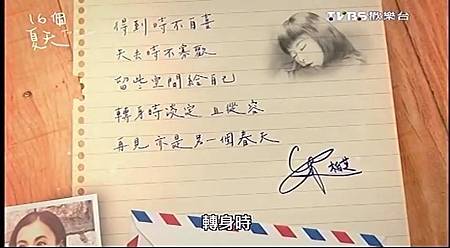 16個
夏天
TVBS歡樂台
得到時不自喜
失去時不寡歡
留些空間給自己
轉身時淡定 且從容
再見 亦是另一個春天
柏芝
轉身時